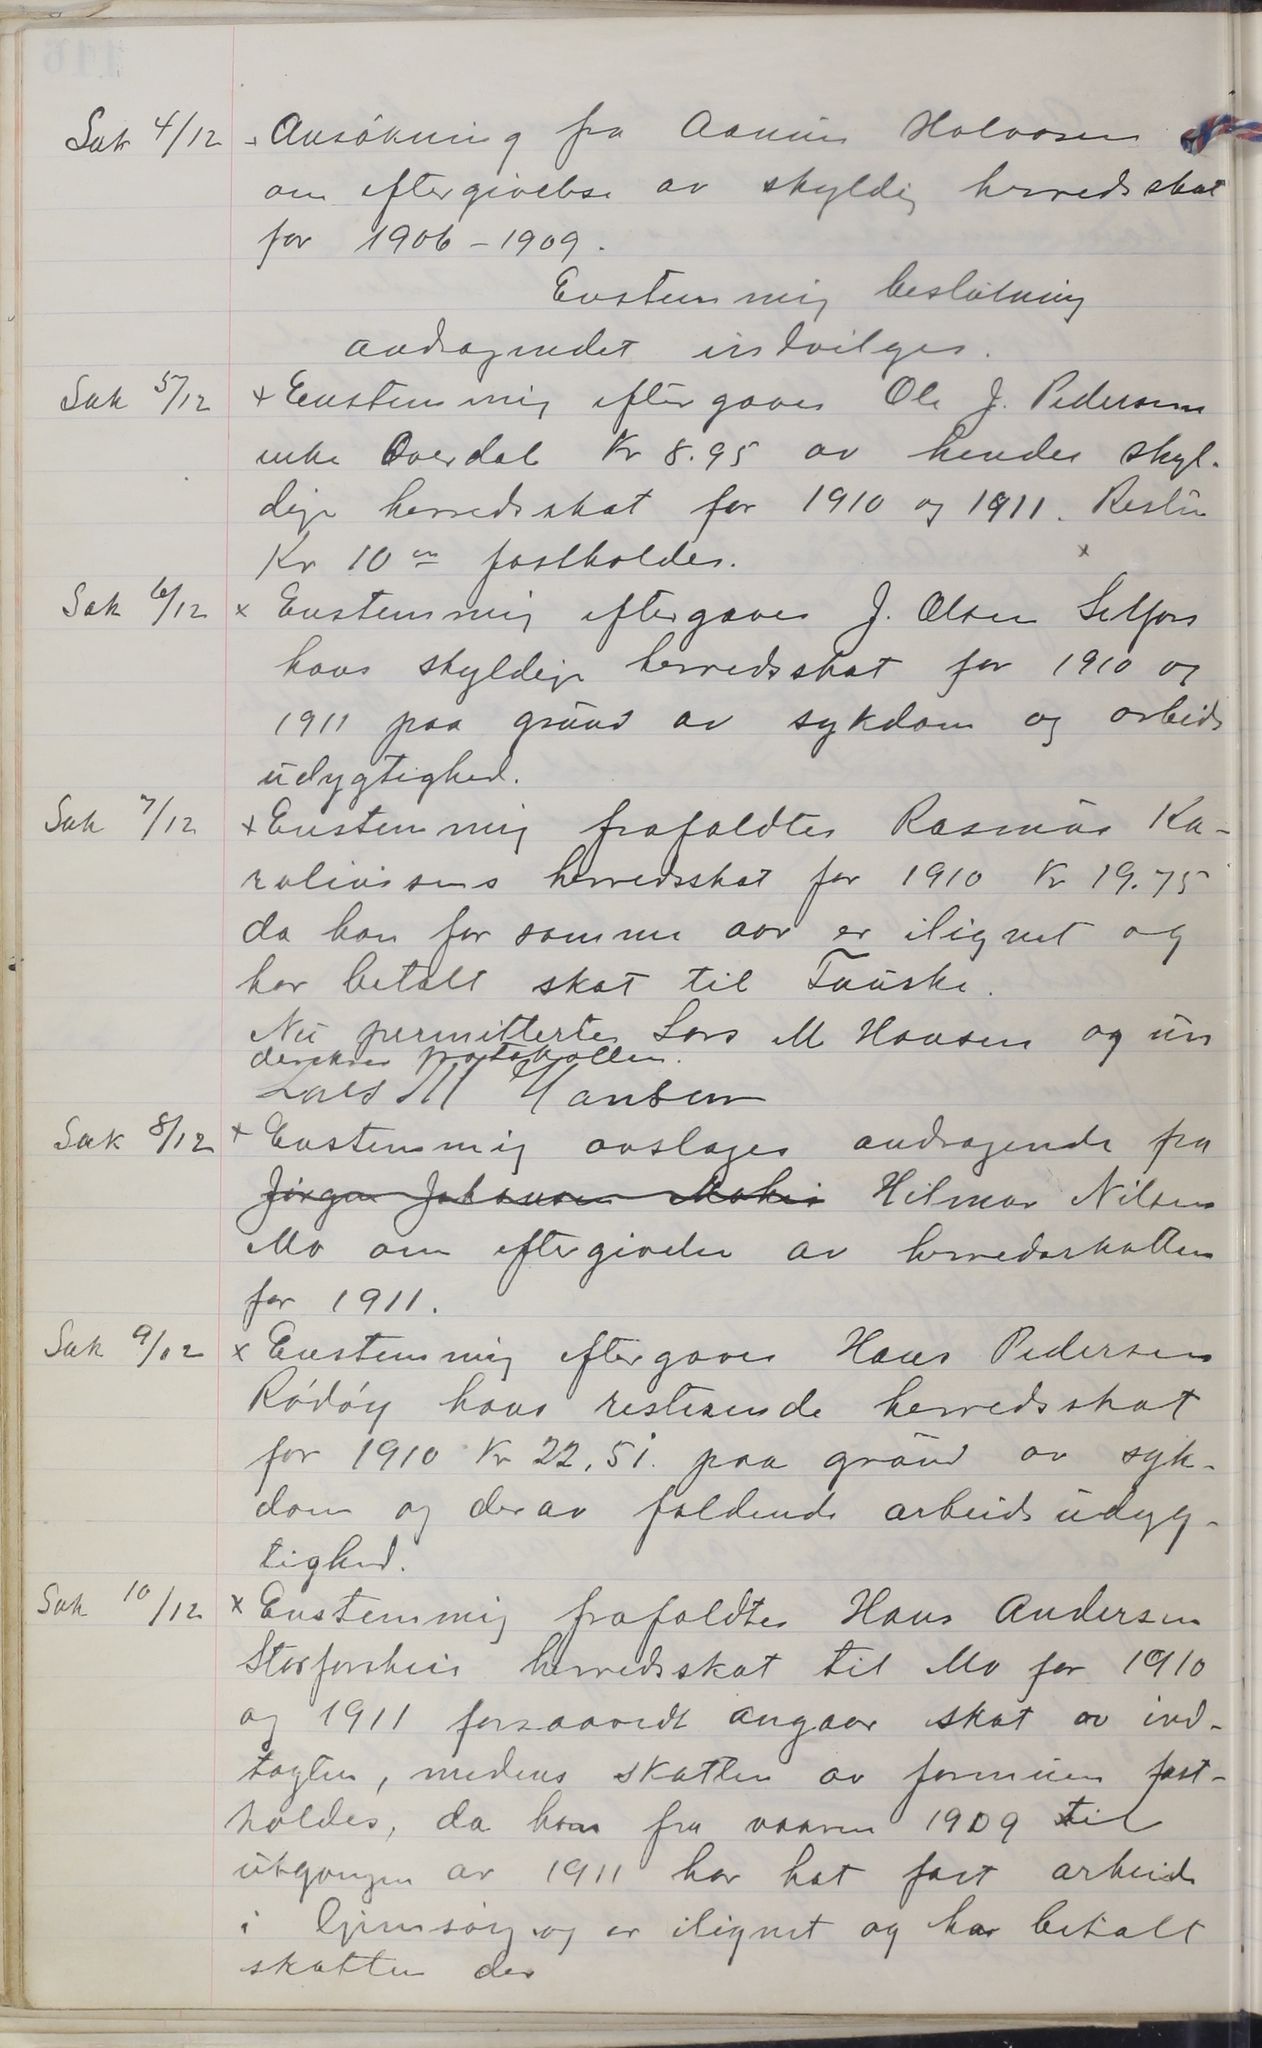 Sak 4/12 Ansökning fra Holvosen
om eftergivelse av skyldig herredsskat
for 1906-1909.
Enstemmig beslutning
andragendet indvilges.
Sak 5/12 x Enstemmig eftergaves Ole J. Pedersens
enke Overdal Kr 8.95 av hendes skyl-
dige herredsskat for 1910 og 1911. Resten
Kr 10 fastholdes. x
Sak 6/12 x Enstemmig eftergaves J. Olsen Selfors
hans skyldige herredsskat for 1910 og
1911 paa grund av sykdom og arbeids
udygtighed.
Sak 7/12 x Enstemmig frafaldtes Rasmus Ka-
roliussens herredsskat for 1910 Kr 19.75
da han for samme aar er ilignet og
har betalt skat til Fauske.
Nu permittertes Lars M Hansen og un
derskrev protokollen.
Lars M Hansen
Sak 8/12 x Enstemmig avslages andragende fra
Jørgen Johansen Hilmar Nilsen
Mo om eftergivelse av herredsskatten
for 1911.
Sak 9/12 x Enstemmig eftergaves Hans Pedersen
Rödöy hans resterende herredsskat
for 1910 Kr 22.51. paa grund av syk-
dom og derav føldende arbeidsudyg-
tighed.
Sak 10/12 x Enstemmig frafaldtes Hans Andersen
Storforshei herredsskat til Mo for 1910
og 1911 forsaavidt angaar skat av ind-
tægten, medens skatten av formuen fast-
holdes, da han fra vaaren 1909 til
utgangen av 1911 har hat fast arbeide
i Gimsöy og er ilignet og har betalt
skatten der